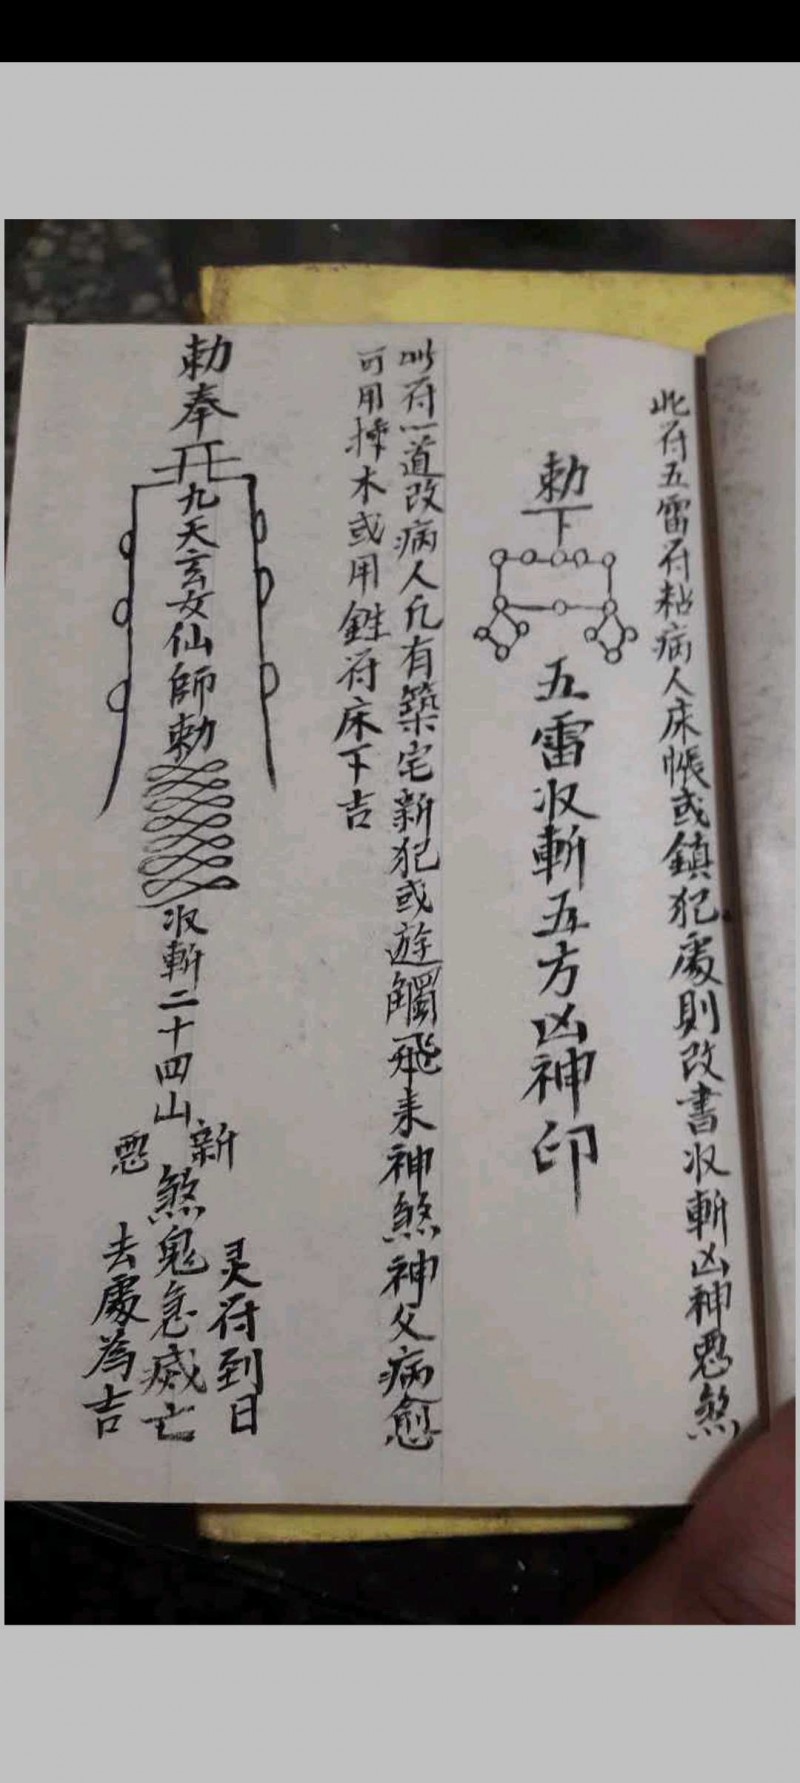 此符五雷符粘病人床帳或鎮犯處則改書收斬凶神惡煞
勅下
五雷收斬五方凶神印
此符一道改病人凡有築宅新犯或遊觸飛来神煞神父病愈
可用揀木或用鉎符床下吉
勅奉
九天玄女仙師勅
收斬二十四山
新
惡
煞鬼急滅亡
灵符到日
去處為吉